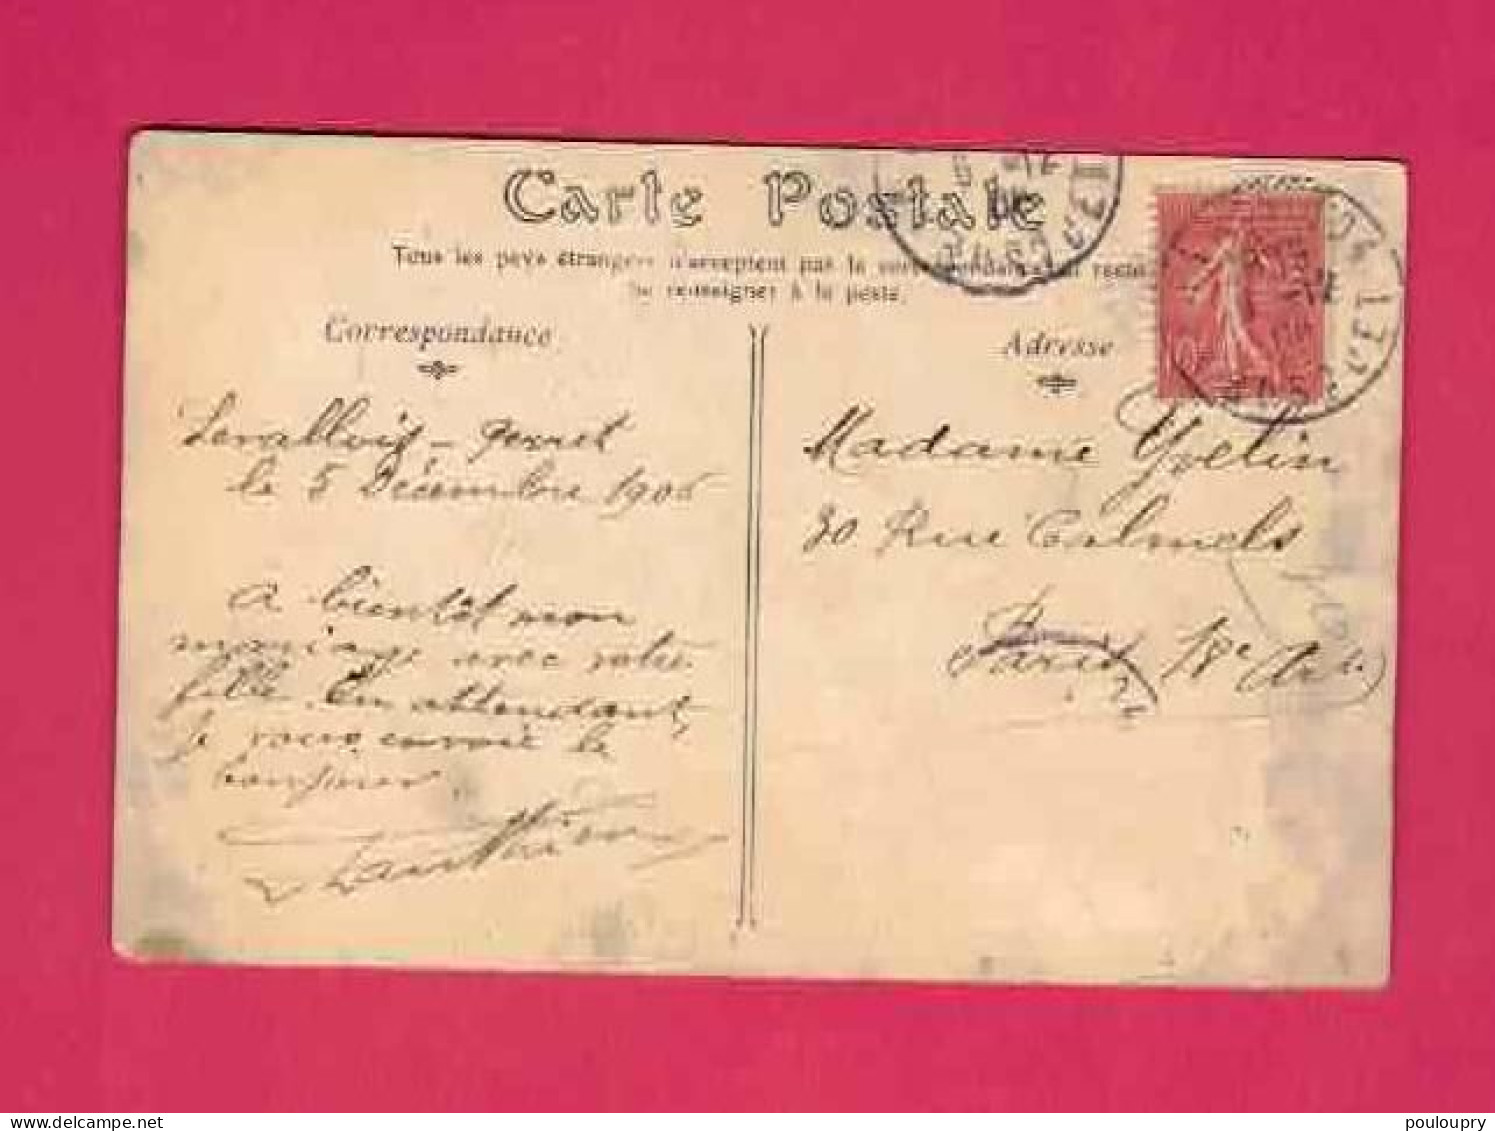 Carte Postale
Tous les pays étrangers n'acceptent pas la correspondance au recto
Se renseigner à la poste.
Correspondance
Levallois-Perret
le 5 Décembre 1906
A bientôt mon
mariage avec votre
fille. En attendant
je vous envoie le
bonjour.
Adresse
Madame Yvelin
30 Rue Calmels
Paris 18e Art.
delcampe.net
pouloupry